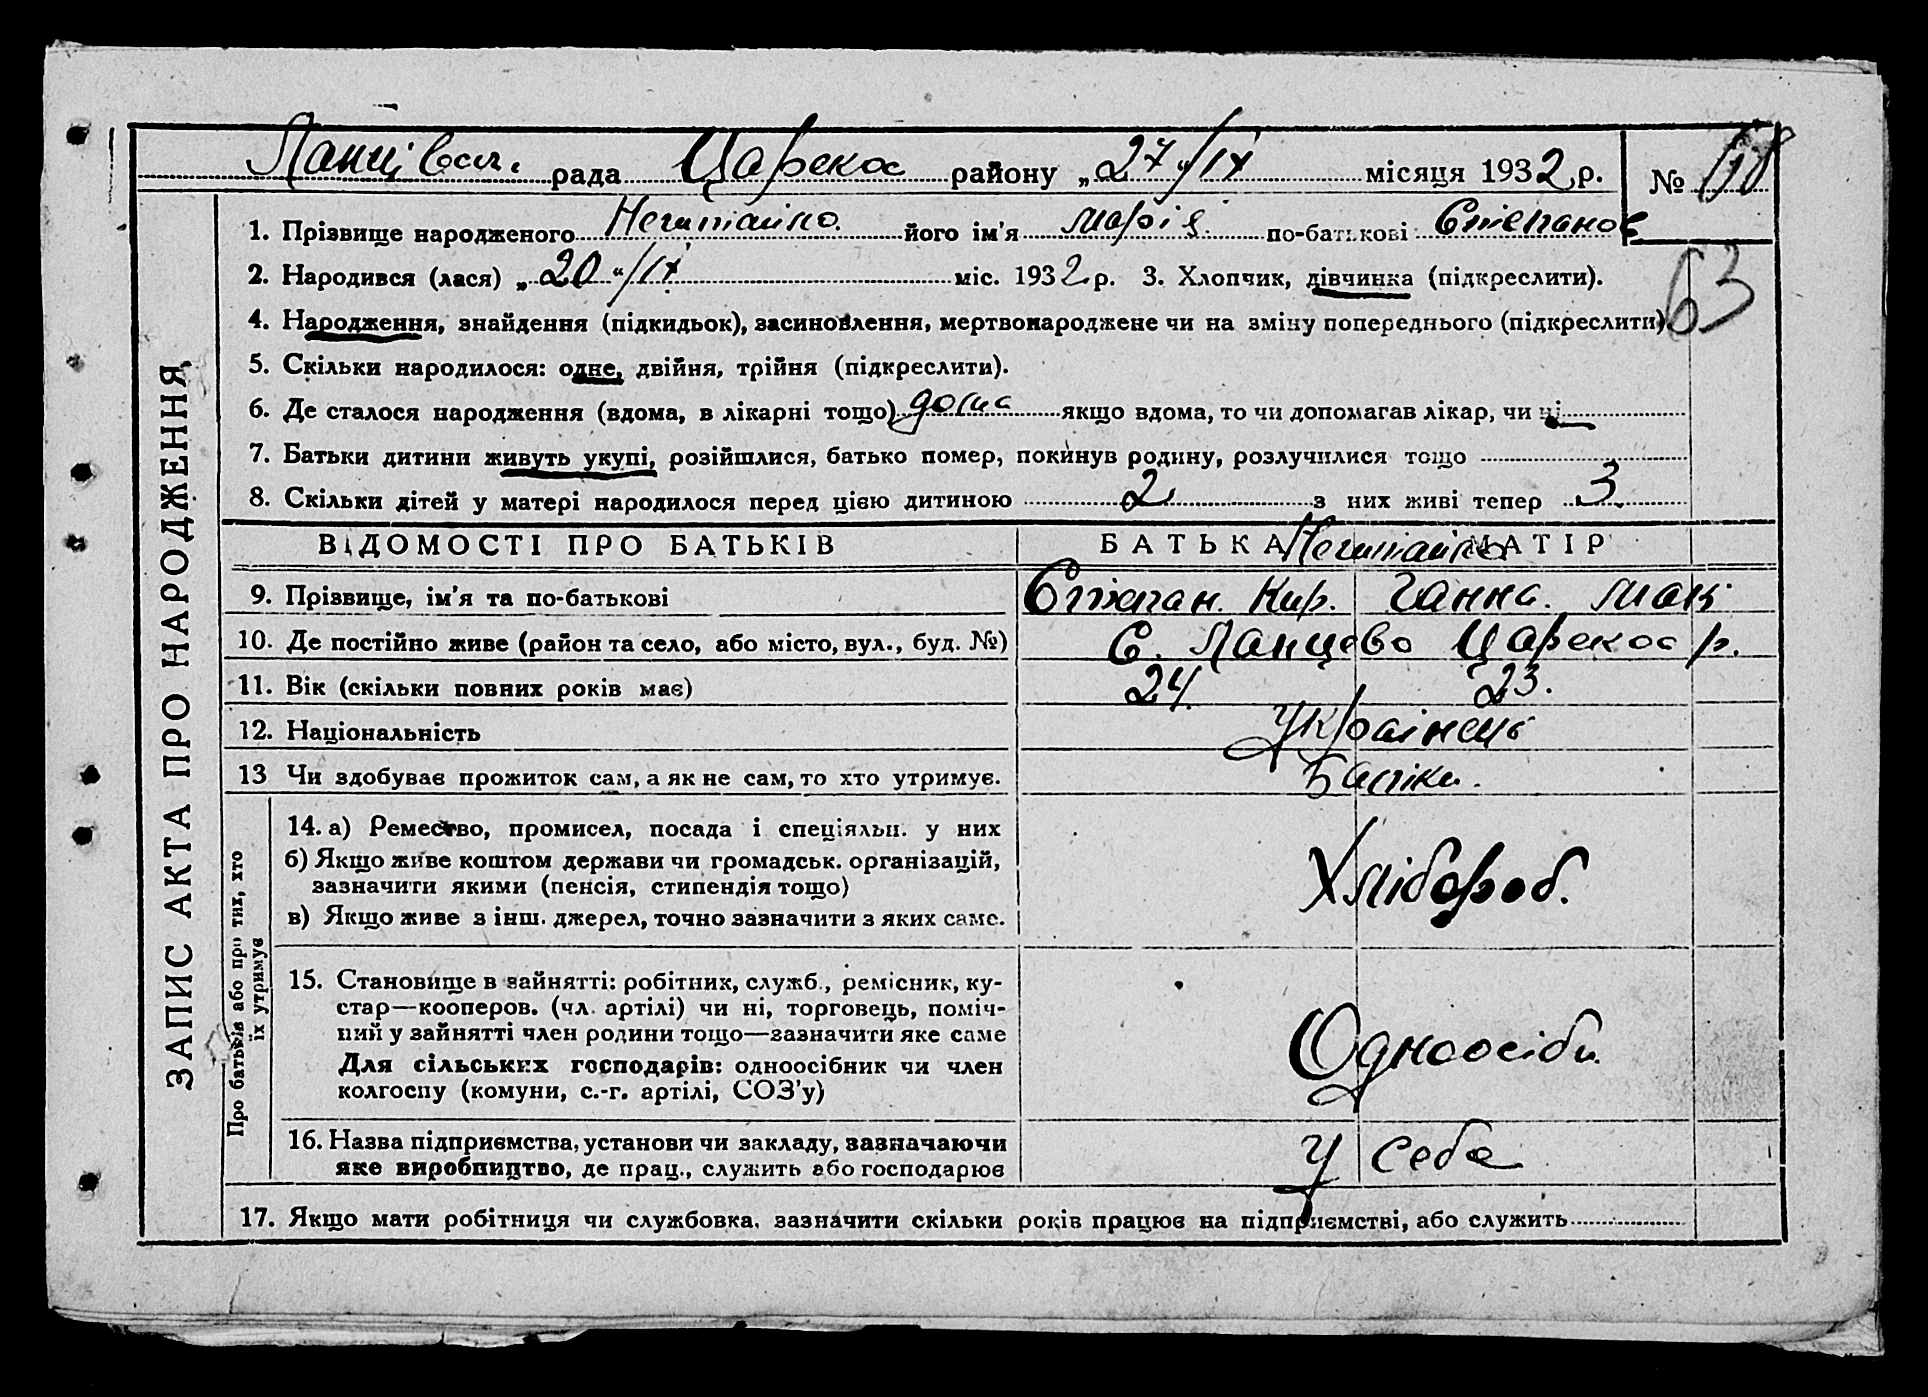 Ланцівськ. рада Царекос району „27"/IX місяця 1932 р. № 118
1. Прізвище народженого Нечитайко його ім'я Марія по-батькові Степанов
2. Народився (лася) „20"/IX міс. 1932 р. 3. Хлопчик, дівчинка (підкреслити).
63
4. Народження, знайдення (підкидьок), засиновлення, мертвонароджене чи на зміну попереднього (підкреслити)
5. Скільки народилося: одне, двійня, трійня (підкреслити).
6. Де сталося народження (вдома, в лікарні тощо) дома якщо вдома, то чи допомагав лікар, чи ні
7. Батьки дитини живуть укупі, розійшлися, батько помер, покинув родину, розлучилися тощо
8. Скільки дітей у матері народилося перед цією дитиною 2 з них живі тепер 3
ВІДОМОСТІ ПРО БАТЬКІВ БАТЬКА МАТІР
Нечитайко
9. Прізвище, ім'я та по-батькові Степан. Кир. Ганна. Мак
10. Де постійно живе (район та село, або місто, вул., буд. №) С. Ланцево Царекос р.
11. Вік (скільки повних років має) 24 23.
12. Національність Українець
13 Чи здобуває прожиток сам, а як не сам, то хто утримує. Батіки.
ЗАПИС АКТА ПРО НАРОДЖЕННЯ
Про батьків або про тих, хто
їх утримує
14. а) Ремество, промисел, посада і спеціяльн. у них
б) Якщо живе коштом держави чи громадськ. організацій,
зазначити якими (пенсія, стипендія тощо)
Хлібороб.
в) Якщо живе з інш. джерел, точно зазначити з яких саме.
15. Становище в зайнятті: робітник, служб., ремісник, ку-
стар—кооперов. (чл. артілі) чи ні, торговець, поміч-
ний у зайнятті член родини тощо—зазначити яке саме
Одноосіби.
Для сільських господарів: одноосібник чи член
колгоспу (комуни, с.-г. артілі, СОЗ'у)
16. Назва підприємства, установи чи закладу, зазначаючи
яке виробництво, де прац., служить або господарює
у себе
17. Якщо мати робітниця чи службовка, зазначити скільки років працює на підприємстві, або служить